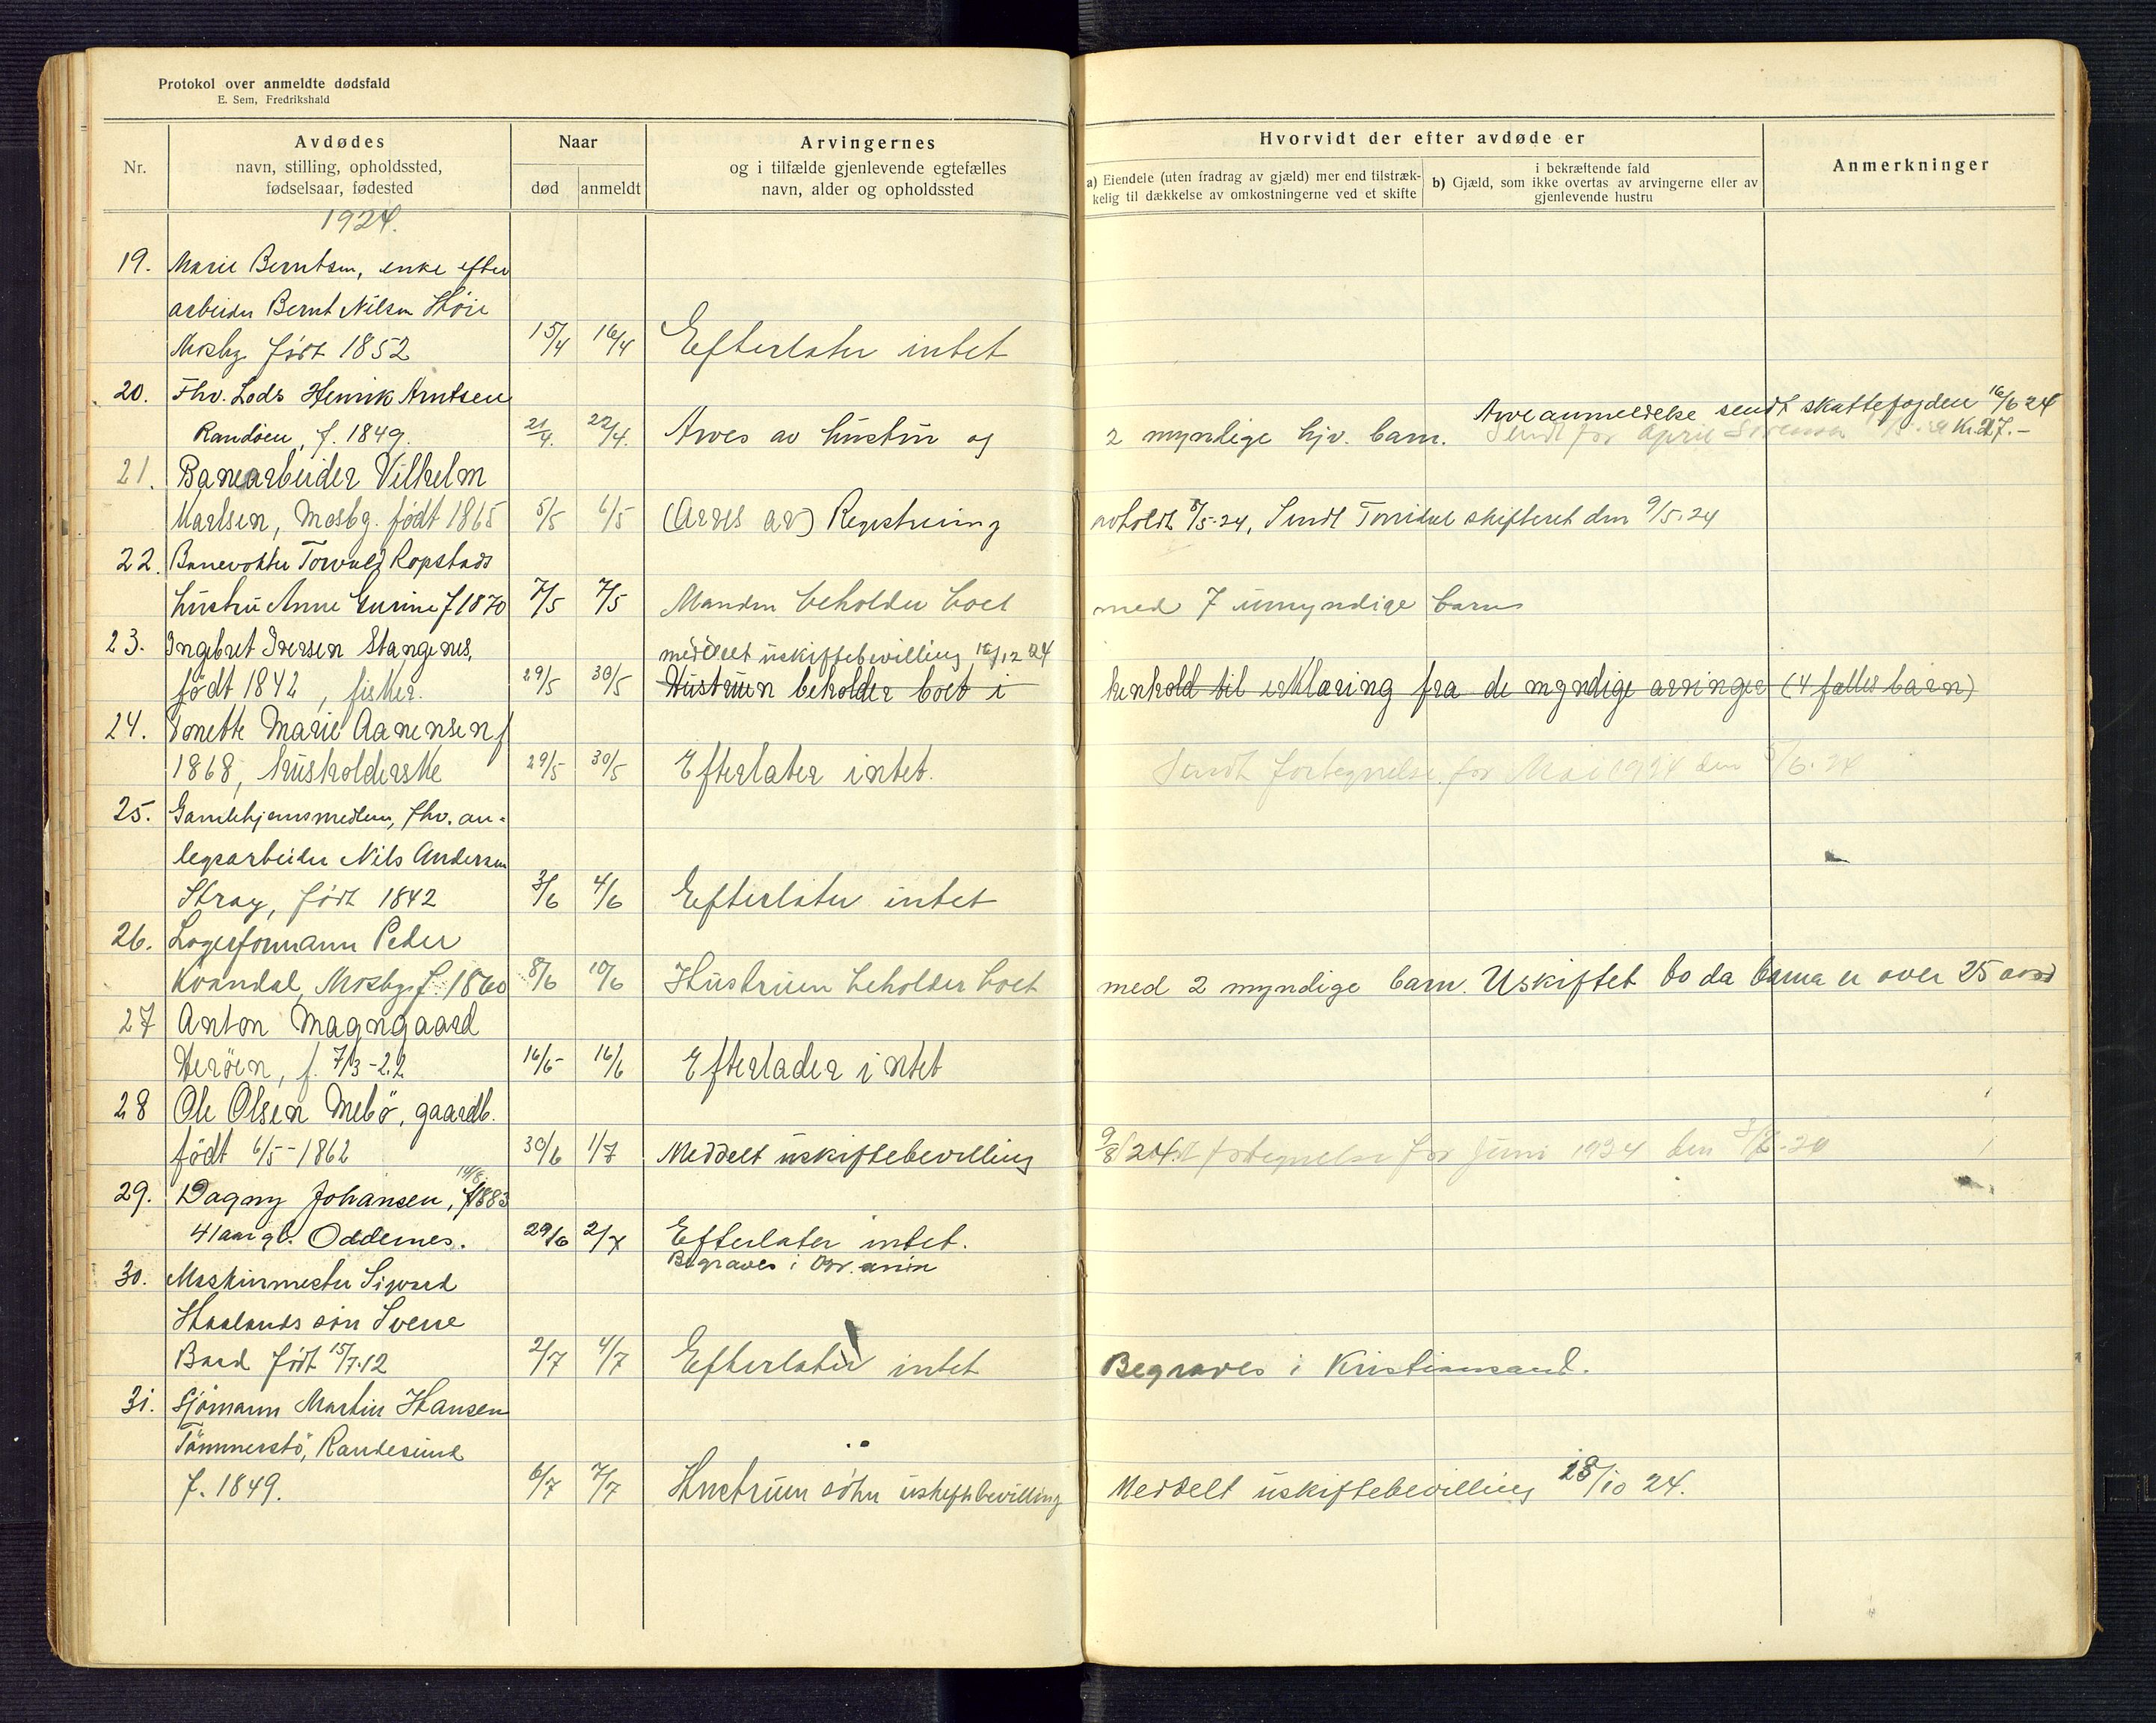 Protokol over anmeldte dødsfald
E. Sem, Fredrikshald
Nr.
Avdødes
navn, stilling, opholdssted,
fødselsaar, fødested
Naar
død anmeldt
Arvingernes
og i tilfælde gjenlevende egtefælles
navn, alder og opholdssted
Hvorvidt der efter avdøde er
a) Eiendele (uten fradrag av gjæld) mer end tilstræk-
kelig til dækkelse av omkostningerne ved et skifte
i bekræftende fald
b) Gjæld, som ikke overtas av arvingerne eller av
gjenlevende hustru
Anmerkninger
1924.
19. Marie Berntsen, enke efter
arbeider Bernt Nilsen Höie
Mosby født 1852 15/4 16/4 Efterlater intet
20. Fhv. Lods Henrik Arntsen
Arveanmeldelse sendt skattefogden 16/6 24
Randöen, f. 1849. 21/4. 22/4. Arves av hustru og 2 mynlige hjv. barn. Sendt for April Kr. 27.-
21. Banearbeider Vilhelm
Karlsen, Mosby. født 1865 5/5 6/5 (Arves av) Registrering avholdt 8/5-24, Sendt Torridal skifteret den 9/5-24
22. Banevokter Torvald Ropstads
hustru Anne Gurine f 1870 7/5 7/5 Manden beholder boet med 7 umyndige barn
23. Ingebret Iversen Stangenes,
meddelt uskiftebevilling 16/12 24
født 1842, fisker. 29/5 30/5 Hustruen beholder boet i henhold til erklæring fra de myndige arvinger (4 fælles barn)
24. Tonette Marie Aanensen f
1868, husholderske 29/5 30/5 Efterlater intet. Sendt fortegnelse for Mai 1924 den 3/6-24
25. Gamlehjemsmedlem, fhv. an-
legsarbeider Nils Andersen
Stray, født 1842 3/6 4/6 Efterlater intet
26. Lagerformann Peder
Kvandal, Mosby f. 1860 8/6 10/6 Hustruen beholder boet med 2 myndige barn. Uskiftet bo da barna er over 25 aar
27 Anton Magngaard
Herøen, f. 7/3-22 16/6- 16/6 Efterlader intet
28 Ole Olsen Mebö, gaardb.
født 6/5-1862 30/6 1/7 Meddelt uskiftebevilling 9/8 24. fortegnelse for Juni 1924 den
14/8
29. Dagny Johansen, f 1883
41 aar gl. Oddernes. 29/6 2/7 Efterlater intet.
Begraves i
30. Maskinmester Sigvard
Haalands sön Sverre
Bård født 15/7.12 2/7 4/7 Efterlater intet Begraves i Kristiansand.
31. Sjömann Martin Hansen
Tømmerstö, Randesund
f. 1849. 6/7 7/7 Hustruen söker uskiftebevilling Meddelt uskiftebevilling 28/10 24.